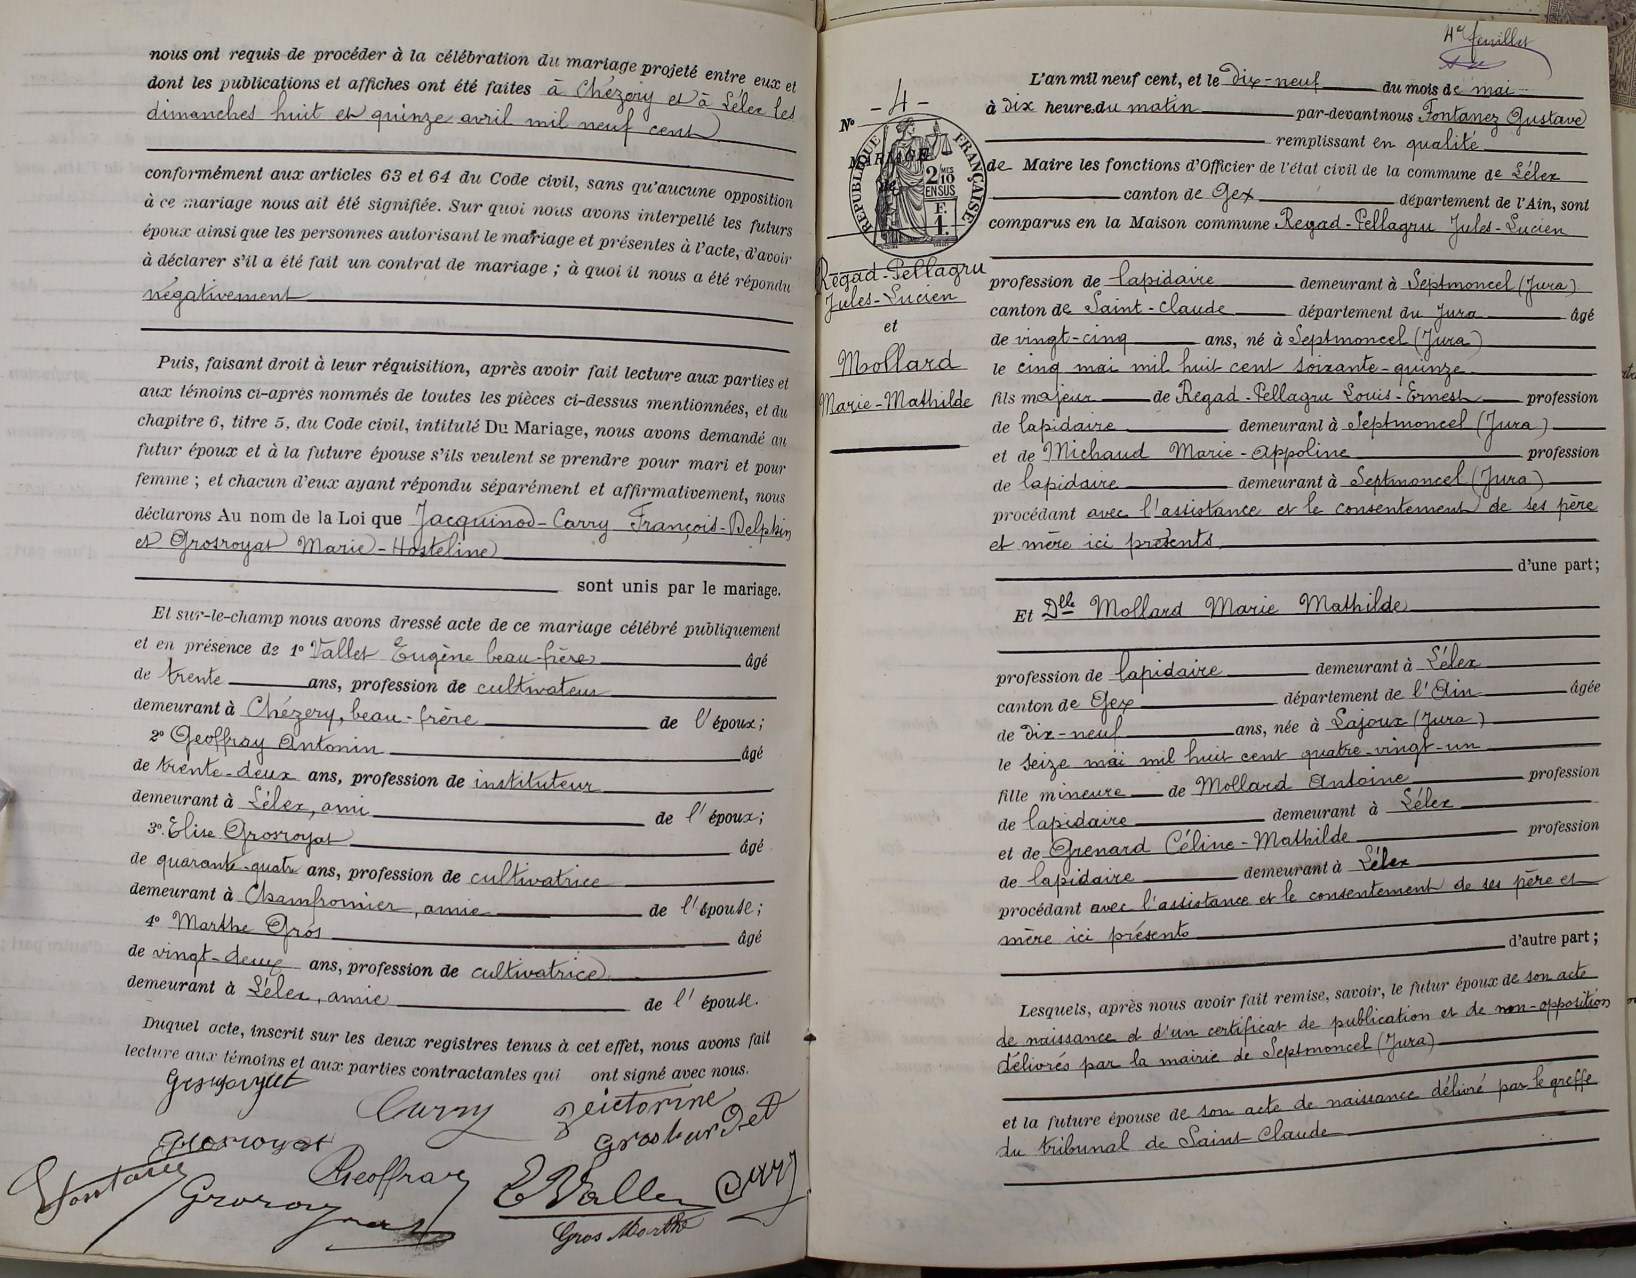 nous ont requis de procéder à la célébration du mariage projeté entre eux et
dont les publications et affiches ont été faites à Chézery et à Lélex les
dimanches huit et quinze avril mil neuf cent
conformément aux articles 63 et 64 du Code civil, sans qu'aucune opposition
à ce mariage nous ait été signifiée. Sur quoi nous avons interpellé les futurs
époux ainsi que les personnes autorisant le mariage et présentes à l'acte, d'avoir
à déclarer s'il a été fait un contrat de mariage ; à quoi il nous a été répondu
négativement
Puis, faisant droit à leur réquisition, après avoir fait lecture aux parties et
aux témoins ci-après nommés de toutes les pièces ci-dessus mentionnées, et du
chapitre 6, titre 5, du Code civil, intitulé Du Mariage, nous avons demandé au
futur époux et à la future épouse s'ils veulent se prendre pour mari et pour
femme ; et chacun d'eux ayant répondu séparément et affirmativement, nous
déclarons Au nom de la Loi que Jacquinod-Carry François-Delphin
et Grosroyat Marie-Hosteline
sont unis par le mariage.
Et sur-le-champ nous avons dressé acte de ce mariage célébré publiquement
et en présence de 1° Vallet Eugène beau-frère âgé
de trente ans, profession de cultivateur
demeurant à Chézery, beau-frère de l'époux;
2° Geoffray Antonin âgé
de trente-deux ans, profession de instituteur
demeurant à Lélex, ami de l'époux;
3° Elise Grosroyat âgé
de quarante-quatre ans, profession de cultivatrice
demeurant à Champfromier, amie de l'épouse;
4° Marthe Gros âgé
de vingt-deux ans, profession de cultivatrice
demeurant à Lélex, amie de l'épouse.
Duquel acte, inscrit sur les deux registres tenus à cet effet, nous avons fait
lecture aux témoins et aux parties contractantes qui ont signé avec nous.
Carry
Grosroyat
Geoffray
E Vallet
Gros Marthe
4e feuillet
N° -4-
MARIAGE
de
RÉPUBLIQUE FRANÇAISE
2/10
EN SUS
F.
1.
Régad-Pellagru
Jules-Lucien
et
Mollard
Marie-Mathilde
L'an mil neuf cent, et le dix-neuf du mois de mai
à dix heures du matin par-devant nous Fontanez Gustave
remplissant en qualité
de Maire les fonctions d'Officier de l'état civil de la commune de Lélex
canton de Gex département de l'Ain, sont
comparus en la Maison commune Regad-Pellagru Jules-Lucien
profession de lapidaire demeurant à Septmoncel (Jura)
canton de Saint-Claude département du Jura âgé
de vingt-cinq ans, né à Septmoncel (Jura)
le cinq mai mil huit cent soixante-quinze
fils majeur de Regad-Pellagru Louis-Ernest profession
de lapidaire demeurant à Septmoncel (Jura)
et de Michaud Marie-Appoline profession
de lapidaire demeurant à Septmoncel (Jura)
procédant avec l'assistance et le consentement de ses père
et mère ici présents
d'une part;
Et Dlle Mollard Marie Mathilde
profession de lapidaire demeurant à Lélex
canton de Gex département de l'Ain âgée
de dix-neuf ans, née à Lajoux (Jura)
le seize mai mil huit cent quatre-vingt-un
fille mineure de Mollard Antoine profession
de lapidaire demeurant à Lélex
et de Grenard Céline-Mathilde profession
de lapidaire demeurant à Lélex
procédant avec l'assistance et le consentement de ses père et
mère ici présents
d'autre part;
Lesquels, après nous avoir fait remise, savoir, le futur époux de son acte
de naissance et d'un certificat de publication et de non-opposition
délivrés par la mairie de Septmoncel (Jura)
et la future épouse de son acte de naissance délivré par le greffe
du tribunal de Saint-Claude